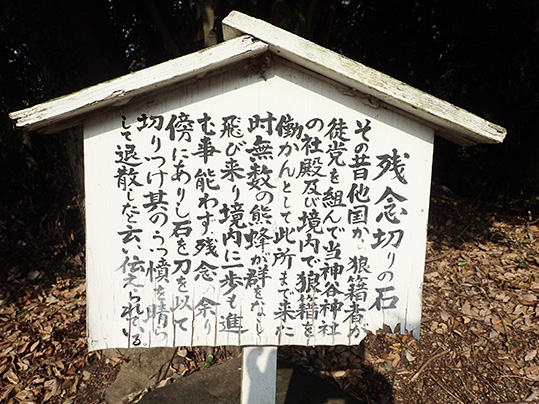 残念切りの石
その昔他国から狼籍者が
徒党を組んで当神谷神社
の社殿及び境内で狼籍を
働かんとして此所まで来た
時無数の熊蜂が群をなし
飛び来り境内に一歩も進
む事能わず残念の余り
傍にありし石を刀を以て
切りつけ其のうっ憤を晴ら
して退散したと云い伝えられている。